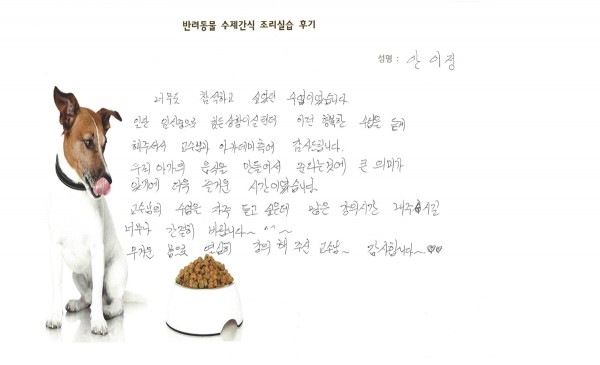 반려동물 수제간식 조리실습 후기
성명 : 안 이정
너무도 참석하고 싶었던 수업이였습니다
인한 임신섭으로 힘든상황이실텐데 이런 행복한 수업을 듣게
해주셔서 교수님과 아카데미측에 감사드립니다.
우리 아가의 음식은 만들어서 준다는것에 큰 의미가
있기에 더욱 즐거운 시간이였습니다.
교수님의 수업은 자주 듣고 싶은데 많은 강의시간 내주시길
너무나 간절히 바랍니다~ ^^~
무거운 몸으로 열심히 강의 해 주신 교수님~ 감사합니다~♥♥